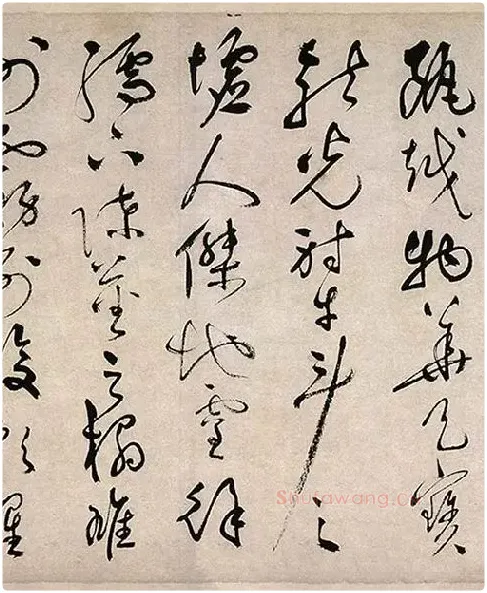 甌越物華天寶
龍光射牛斗之
墟人傑地靈徐
孺下陳蕃之榻雄
州霧列俊星